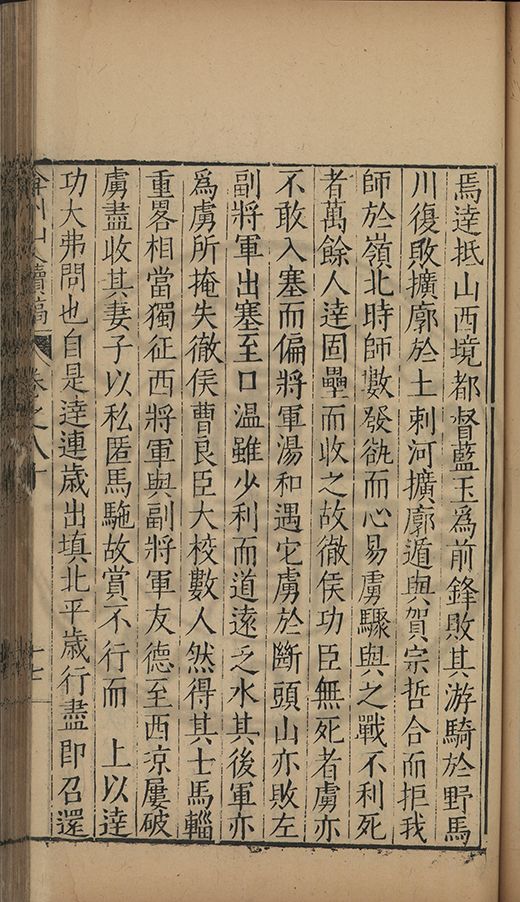 焉達抵山西境都督藍玉爲前鋒敗其游騎於野馬
川復敗擴廓於土剌河擴廓遁與賀宗哲合而拒我
師於嶺北時師數發㰸而心易虜驟與之戰不利死
者萬餘人達固壘而收之故徹侯功臣無死者虜亦
不敢入塞而偏將軍湯和遇它虜於斷頭山亦敗左
副將軍出塞至口溫雖少利而道遠乏水其後軍亦
爲虜所掩失徹侯曹良臣大校數人然得其士馬輜
重畧相當獨征西將軍與副將軍友德至西涼屢破
虜盡收其妻子以私匿馬駞故賞不行而 上以達
功大弗問也自是達連歲出填北平歲行盡即召還
弇州山人續稿 卷之八十 十七